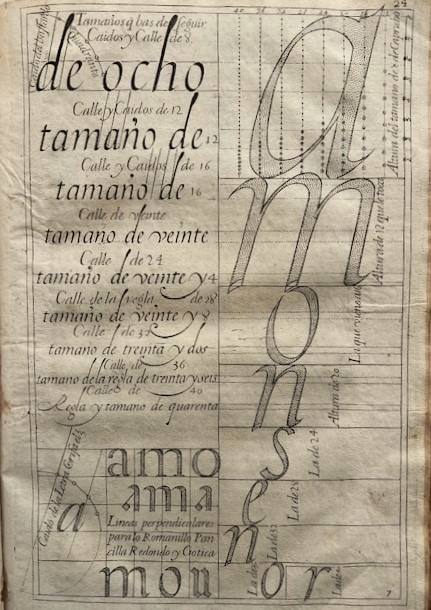 24
Tamaños q̃ bas de seguir
Caidos y Calle de 8.
Quadrante
de ocho
Calle y Caidos de 12
tamaño de 12
Calle y Caidos de 16
tamaño de 16
Calle de veinte
tamaño de veinte
Calle de 24
tamaño de veinte y 4
Calle de la regla de 28
tamaño de veinte y 8
Calle de 32
tamaño de treinta y dos
Calle de 36
tamaño de la regla de treinta y seis
Calle de 40
Regla y tamaño de quarenta
a
Altura del tamaño de 8 de Caydos
m
Altura de 12 que le toca
o
La que viene
n
Altura de 20
s
La de 24
e
La de 28
n
La de 32
o
La de 36
r
La de
Caido de la Letra Grifa
a
amo
ama
Lineas perpendiculares
para lo Romanillo Pan
cilla Redondo y Gotica
mou
7